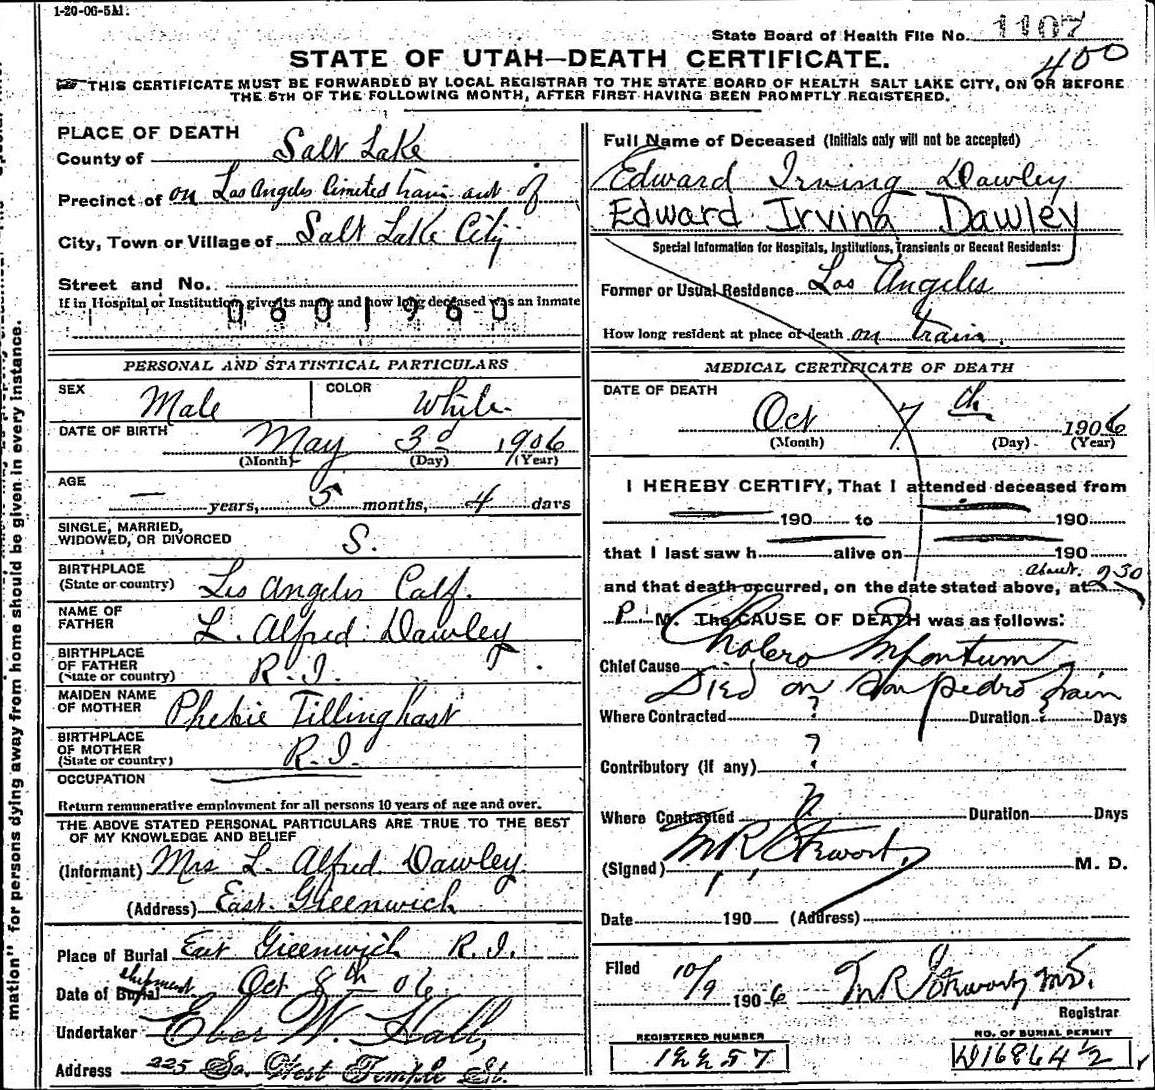 1-20-06-5M.
State Board of Health File No. 1107
400
STATE OF UTAH—DEATH CERTIFICATE.
THIS CERTIFICATE MUST BE FORWARDED BY LOCAL REGISTRAR TO THE STATE BOARD OF HEALTH SALT LAKE CITY, ON OR BEFORE
THE 5TH OF THE FOLLOWING MONTH, AFTER FIRST HAVING BEEN PROMPTLY REGISTERED.
PLACE OF DEATH
County of Salt Lake
Precinct of on Los Angeles Limited train out of
City, Town or Village of Salt Lake City
Street and No.
If in Hospital or Institution give its name and how long deceased was an inmate
0601960
PERSONAL AND STATISTICAL PARTICULARS
SEX Male COLOR White
DATE OF BIRTH May 3d 1906
(Month) (Day) (Year)
AGE — years, 5 months, 4 days
SINGLE, MARRIED,
WIDOWED, OR DIVORCED S.
BIRTHPLACE
(State or country) Los Angeles Calf.
NAME OF
FATHER L. Alfred Dawley
BIRTHPLACE
OF FATHER
(State or country) R.I.
MAIDEN NAME
OF MOTHER Phebie Tillinghast
BIRTHPLACE
OF MOTHER
(State or country) R.I.
OCCUPATION
Return remunerative employment for all persons 10 years of age and over.
THE ABOVE STATED PERSONAL PARTICULARS ARE TRUE TO THE BEST
OF MY KNOWLEDGE AND BELIEF
(Informant) Mrs L. Alfred Dawley
(Address) East Greenwich
Place of Burial East Greenwich R.I.
shipment
Date of Burial Oct 8th 06
Undertaker Eber W. Hall,
Address 225 So. West Temple St.
Full Name of Deceased (Initials only will not be accepted)
Edward Irving Dawley
Edward Irving Dawley
Special Information for Hospitals, Institutions, Transients or Recent Residents:
Former or Usual Residence Los Angeles
How long resident at place of death on train.
MEDICAL CERTIFICATE OF DEATH
DATE OF DEATH
Oct 7th 1906
(Month) (Day) (Year)
I HEREBY CERTIFY, That I attended deceased from
190 to 190
that I last saw h alive on 190
and that death occurred, on the date stated above, at about 2 30
P M. The CAUSE OF DEATH was as follows:
Chief Cause Cholera Infantum
Died on San Pedro train
Where Contracted ? Duration ? Days
Contributory (if any) ?
Where Contracted ? Duration Days
(Signed) M R Stewart, M. D.
Date 190 (Address)
Filed 10/9 1906 M R Stewart, M.D.
Registrar
REGISTERED NUMBER
NO. OF BURIAL PERMIT
mation" for persons dying away from home should be given in every instance.